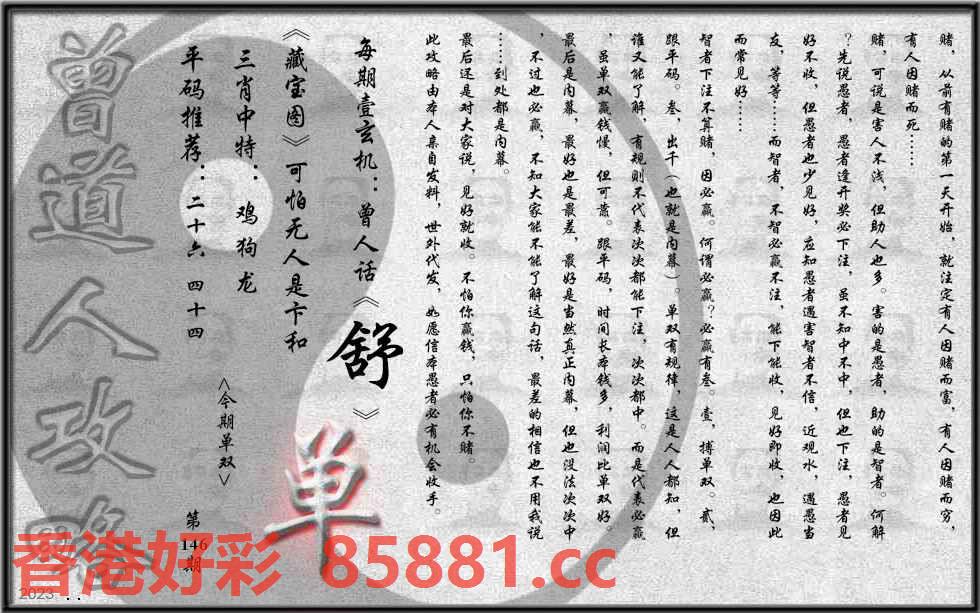 赌，从前有赌的第一天开始，就注定有人因赌而富，有人因赌而穷，
有人因赌而死……
赌，可说是害人不浅，但助人也多。害的是愚者，助的是智者。何解
？先说愚者，愚者逢开奖必下注，虽不知中不中，但也下注，愚者见
好不收，但愚者也少见好，应知愚者遇害智者不信，近观水，遇愚当
友，等等……而智者，不智必赢不注，能下能收，见好即收，也因此
而常见好……
智者下注不算赌，因必赢。何谓必赢？必赢有叁。壹，搏单双。贰，
跟平码。叁，出千（也就是内幕）。单双有规律，这是人人都知，但
谁又能了解，有规则不代表次次都能下注，次次都中。而是代表必赢
，虽单双赢钱慢，但可蓄。跟平码，时间长本钱多，利润比单双好。
最后是内幕，最好也是最差，最好是当然真正内幕，但也没法次次中
，不过也必赢，不知大家能不能了解这句话，最差的相信也不用我说
……到处都是内幕。
最后还是对大家说，见好就收。不怕你赢钱，只怕你不赌。
此攻略由本人亲自发料，世外代发，如愿信本愚者必有机会收手。
每期壹玄机：曾人话《舒》
《藏宝图》可怕无人是卞和
三肖中特：鸡狗龙
平码推荐：二十六 四十四
<今期单双>
单
第146期
曾道人攻略
香港好彩 85881.cc
2023